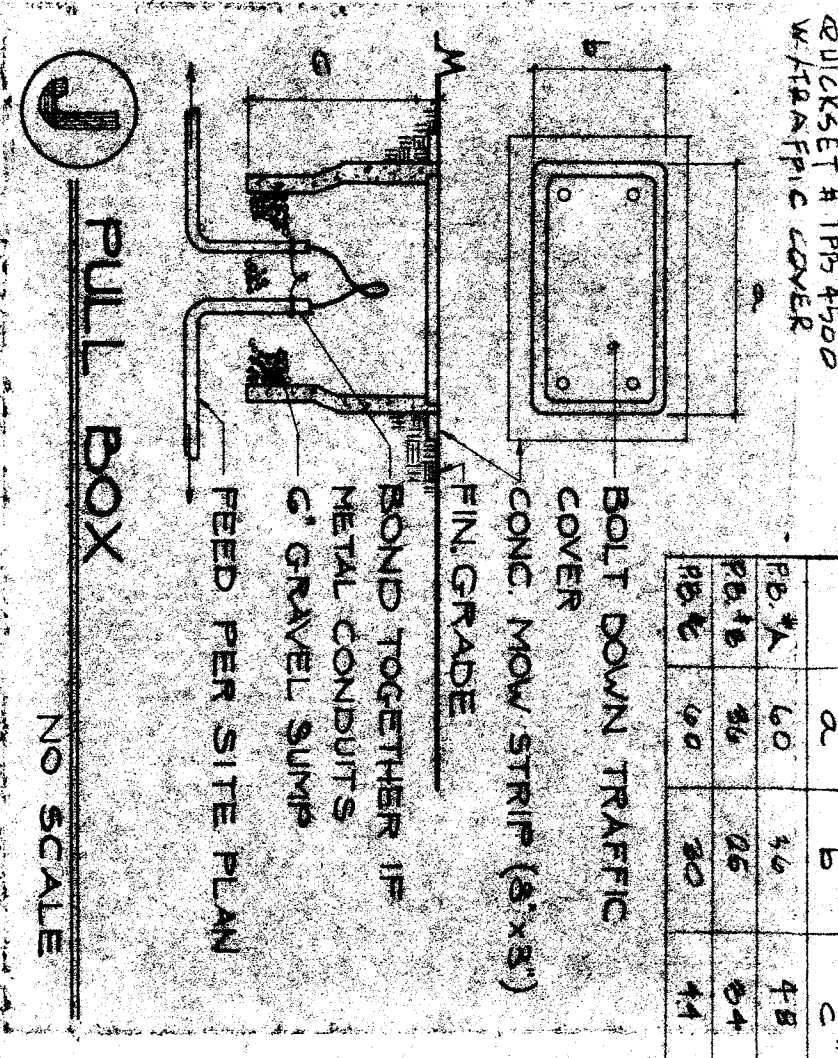 W/TRAFFIC COVER
a b c
P.B. #A 60 36 48
P.B. #B 36 34
P.B. #C 60 30 44
b
a
BOLT DOWN TRAFFIC
COVER
CONC. MOW STRIP (8"x8")
FIN. GRADE
BOND TOGETHER IF
METAL CONDUITS
6" GRAVEL SUMP
FEED PER SITE PLAN
J
PULL BOX
NO SCALE